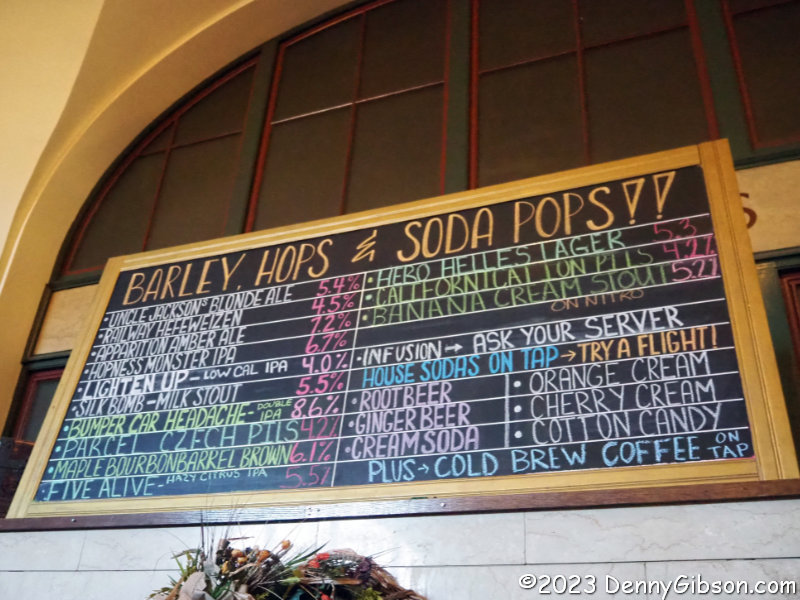 BARLEY, HOPS & SODA POPS!!
• UNCLE JACKSON'S BLONDE ALE 5.4%
• RAILWAY HEFEWEIZEN 4.5%
• APPARITION AMBER ALE 7.2%
• HOPNESS MONSTER IPA 6.7%
• LIGHTEN UP - LOW CAL IPA 4.0%
• SILK BOMB - MILK STOUT 5.5%
• BUMPER CAR HEADACHE - DOUBLE IPA 8.6%
• PARCEL CZECH PILS 4.2%
• MAPLE BOURBON BARREL BROWN 6.1%
• FIVE ALIVE - HAZY CITRUS IPA 5.5%
• HEBO HELLES LAGER 5.3
• CALIFORNICATION PILS 4.7%
• BANANA CREAM STOUT 5.2%
ON NITRO
• INFUSION → ASK YOUR SERVER
HOUSE SODAS ON TAP → TRY A FLIGHT!
• ROOT BEER
• GINGER BEER
• CREAM SODA
• ORANGE CREAM
• CHERRY CREAM
• COTTON CANDY
PLUS → COLD BREW COFFEE ON TAP
©2023 DennyGibson.com